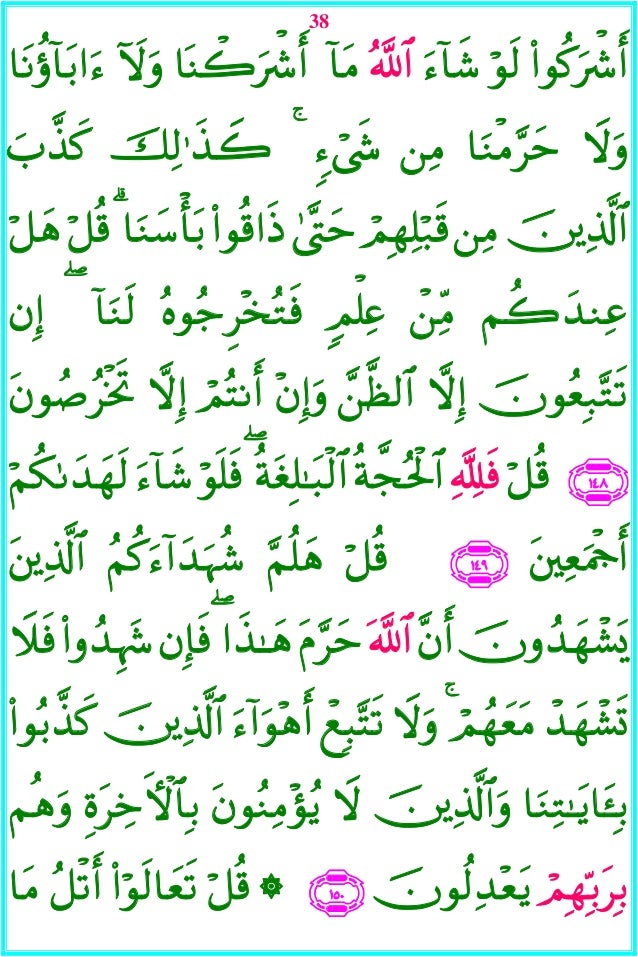 38
أَشۡرَكُواْ لَوۡ شَآءَ ٱللَّهُ مَآ أَشۡرَكۡنَا وَلَآ ءَابَآؤُنَا
وَلَا حَرَّمۡنَا مِن شَيۡءٖۚ كَذَٰلِكَ كَذَّبَ
ٱلَّذِينَ مِن قَبۡلِهِمۡ حَتَّىٰ ذَاقُواْ بَأۡسَنَاۗ قُلۡ هَلۡ
عِندَكُم مِّنۡ عِلۡمٖ فَتُخۡرِجُوهُ لَنَآۖ إِن
تَتَّبِعُونَ إِلَّا ٱلظَّنَّ وَإِنۡ أَنتُمۡ إِلَّا تَخۡرُصُونَ
١٤٨ قُلۡ فَلِلَّهِ ٱلۡحُجَّةُ ٱلۡبَٰلِغَةُۖ فَلَوۡ شَآءَ لَهَدَىٰكُمۡ
أَجۡمَعِينَ ١٤٩ قُلۡ هَلُمَّ شُهَدَآءَكُمُ ٱلَّذِينَ
يَشۡهَدُونَ أَنَّ ٱللَّهَ حَرَّمَ هَٰذَاۖ فَإِن شَهِدُواْ فَلَا
تَشۡهَدۡ مَعَهُمۡۚ وَلَا تَتَّبِعۡ أَهۡوَآءَ ٱلَّذِينَ كَذَّبُواْ
بِـَٔايَٰتِنَا وَٱلَّذِينَ لَا يُؤۡمِنُونَ بِٱلۡأٓخِرَةِ وَهُم
بِرَبِّهِمۡ يَعۡدِلُونَ ١٥٠ ۞ قُلۡ تَعَالَوۡاْ أَتۡلُ مَا